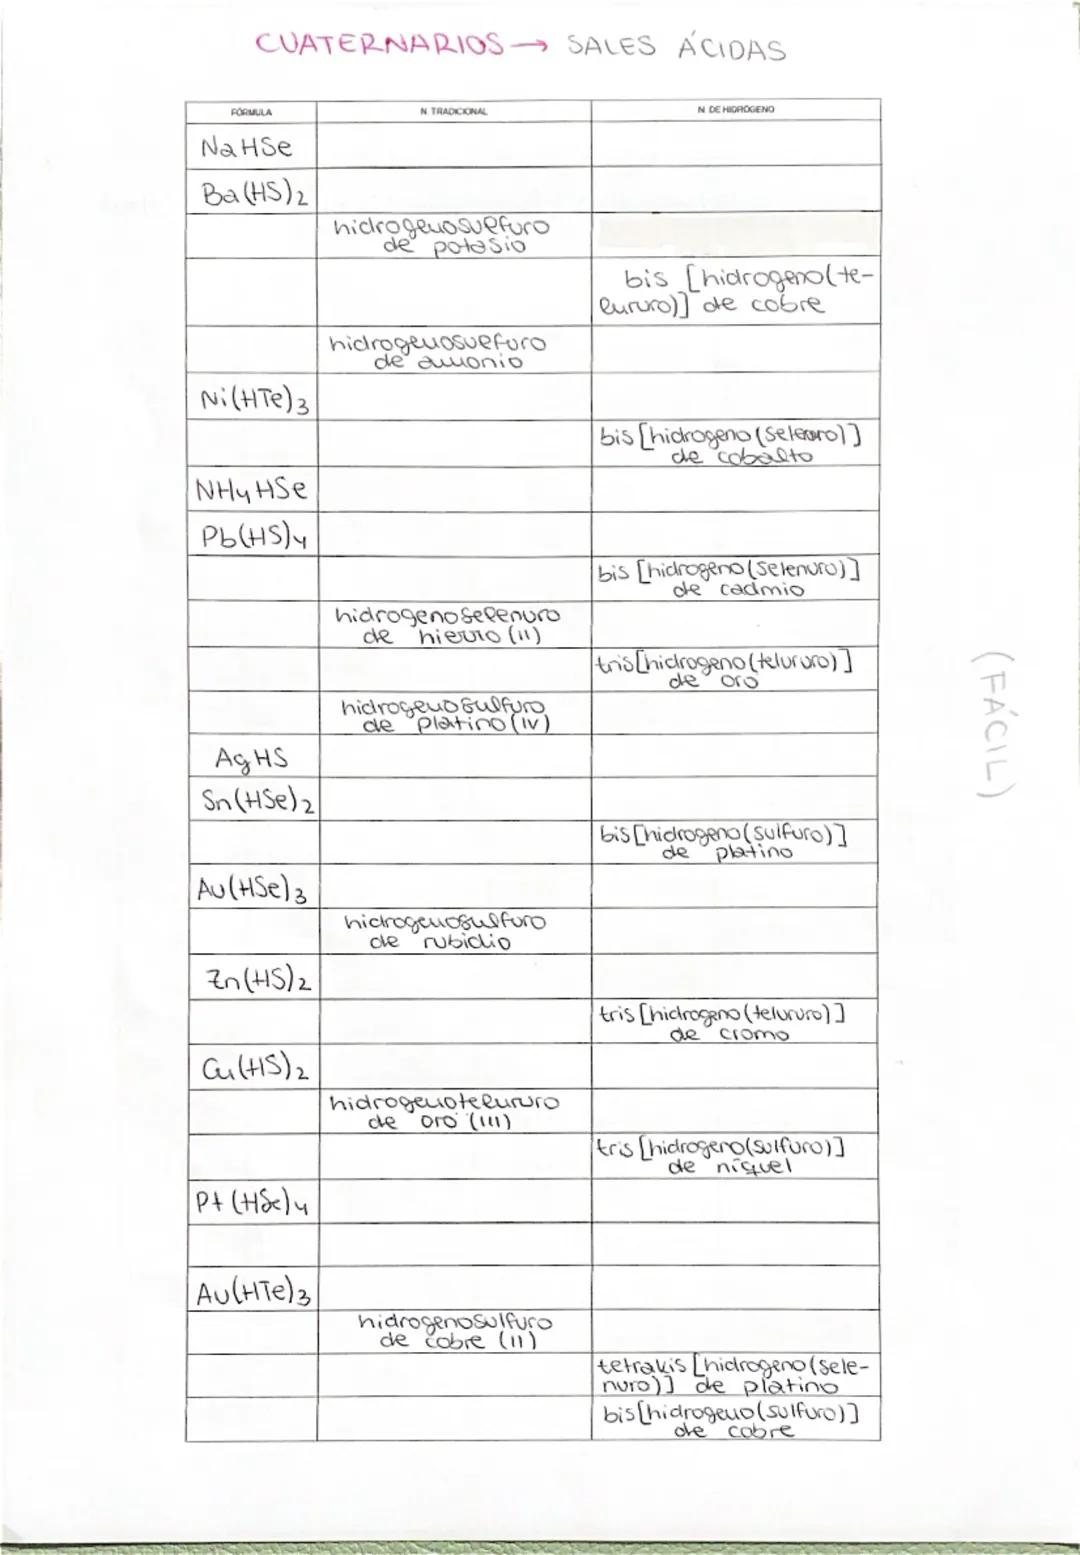 CUATERNARIOS → SALES ÁCIDAS
FÓRMULA N. TRADICIONAL N. DE HIDRÓGENO
NaHSe
Ba(HS)2
hidrogenosulfuro
de potasio
bis [hidrogeno(te-
lururo)] de cobre
hidrogenosulfuro
de amonio
Ni(HTe)3
bis [hidrogeno (seleuro)]
de cobalto
NH4HSe
Pb(HS)4
bis [hidrogeno (selenuro)]
de cadmio
hidrogenoselenuro
de hierro (II)
tris [hidrogeno (telururo)]
de oro
hidrogenosulfuro
de platino (IV)
AgHS
Sn(HSe)2
bis [hidrogeno (sulfuro)]
de platino
Au(HSe)3
hidrogenosulfuro
de rubidio
Zn(HS)2
tris [hidrogeno (telururo)]
de cromo
Cu(HS)2
hidrogenotelururo
de oro (III)
tris [hidrogeno(sulfuro)]
de níquel
Pt(HSe)4
Au(HTe)3
hidrogenosulfuro
de cobre (II)
tetrakis [hidrogeno (sele-
nuro)] de platino
bis [hidrogeno (sulfuro)]
de cobre
(FÁCIL)